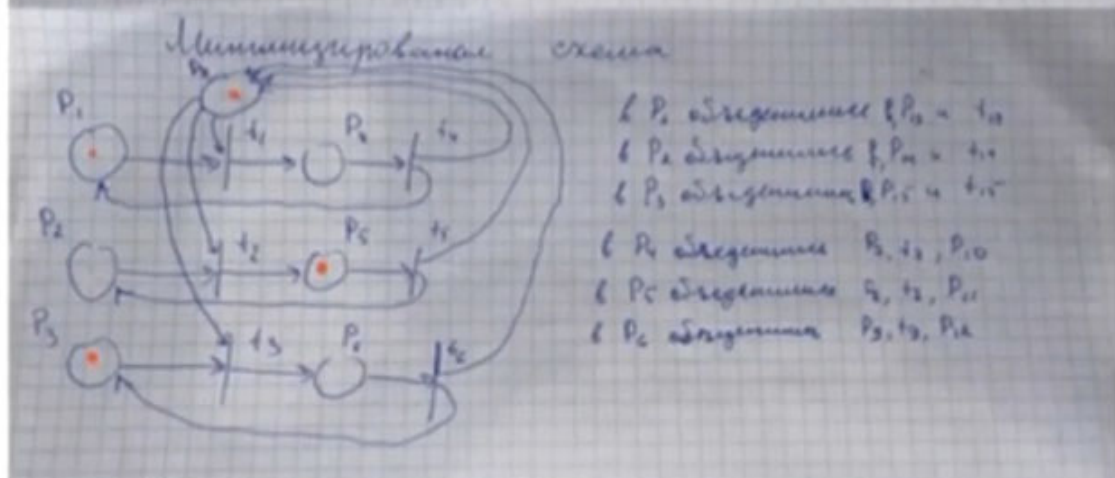 Минимизированая схема
P₁
t₁
P₄
t₄
P₂
t₂
P₅
t₅
P₃
t₃
P₆
t₆
в P₁ объеденилис P₁₃ и t₁₃
в P₂ объеденилис и t₁₄
в P₃ объеденилис P₁₅ и t₁₅
в P₄ объеденилис t₇, P₁₀
в P₅ объеденилис t₈, P₁₁
в P₆ объеденилис P₉, t₉, P₁₂